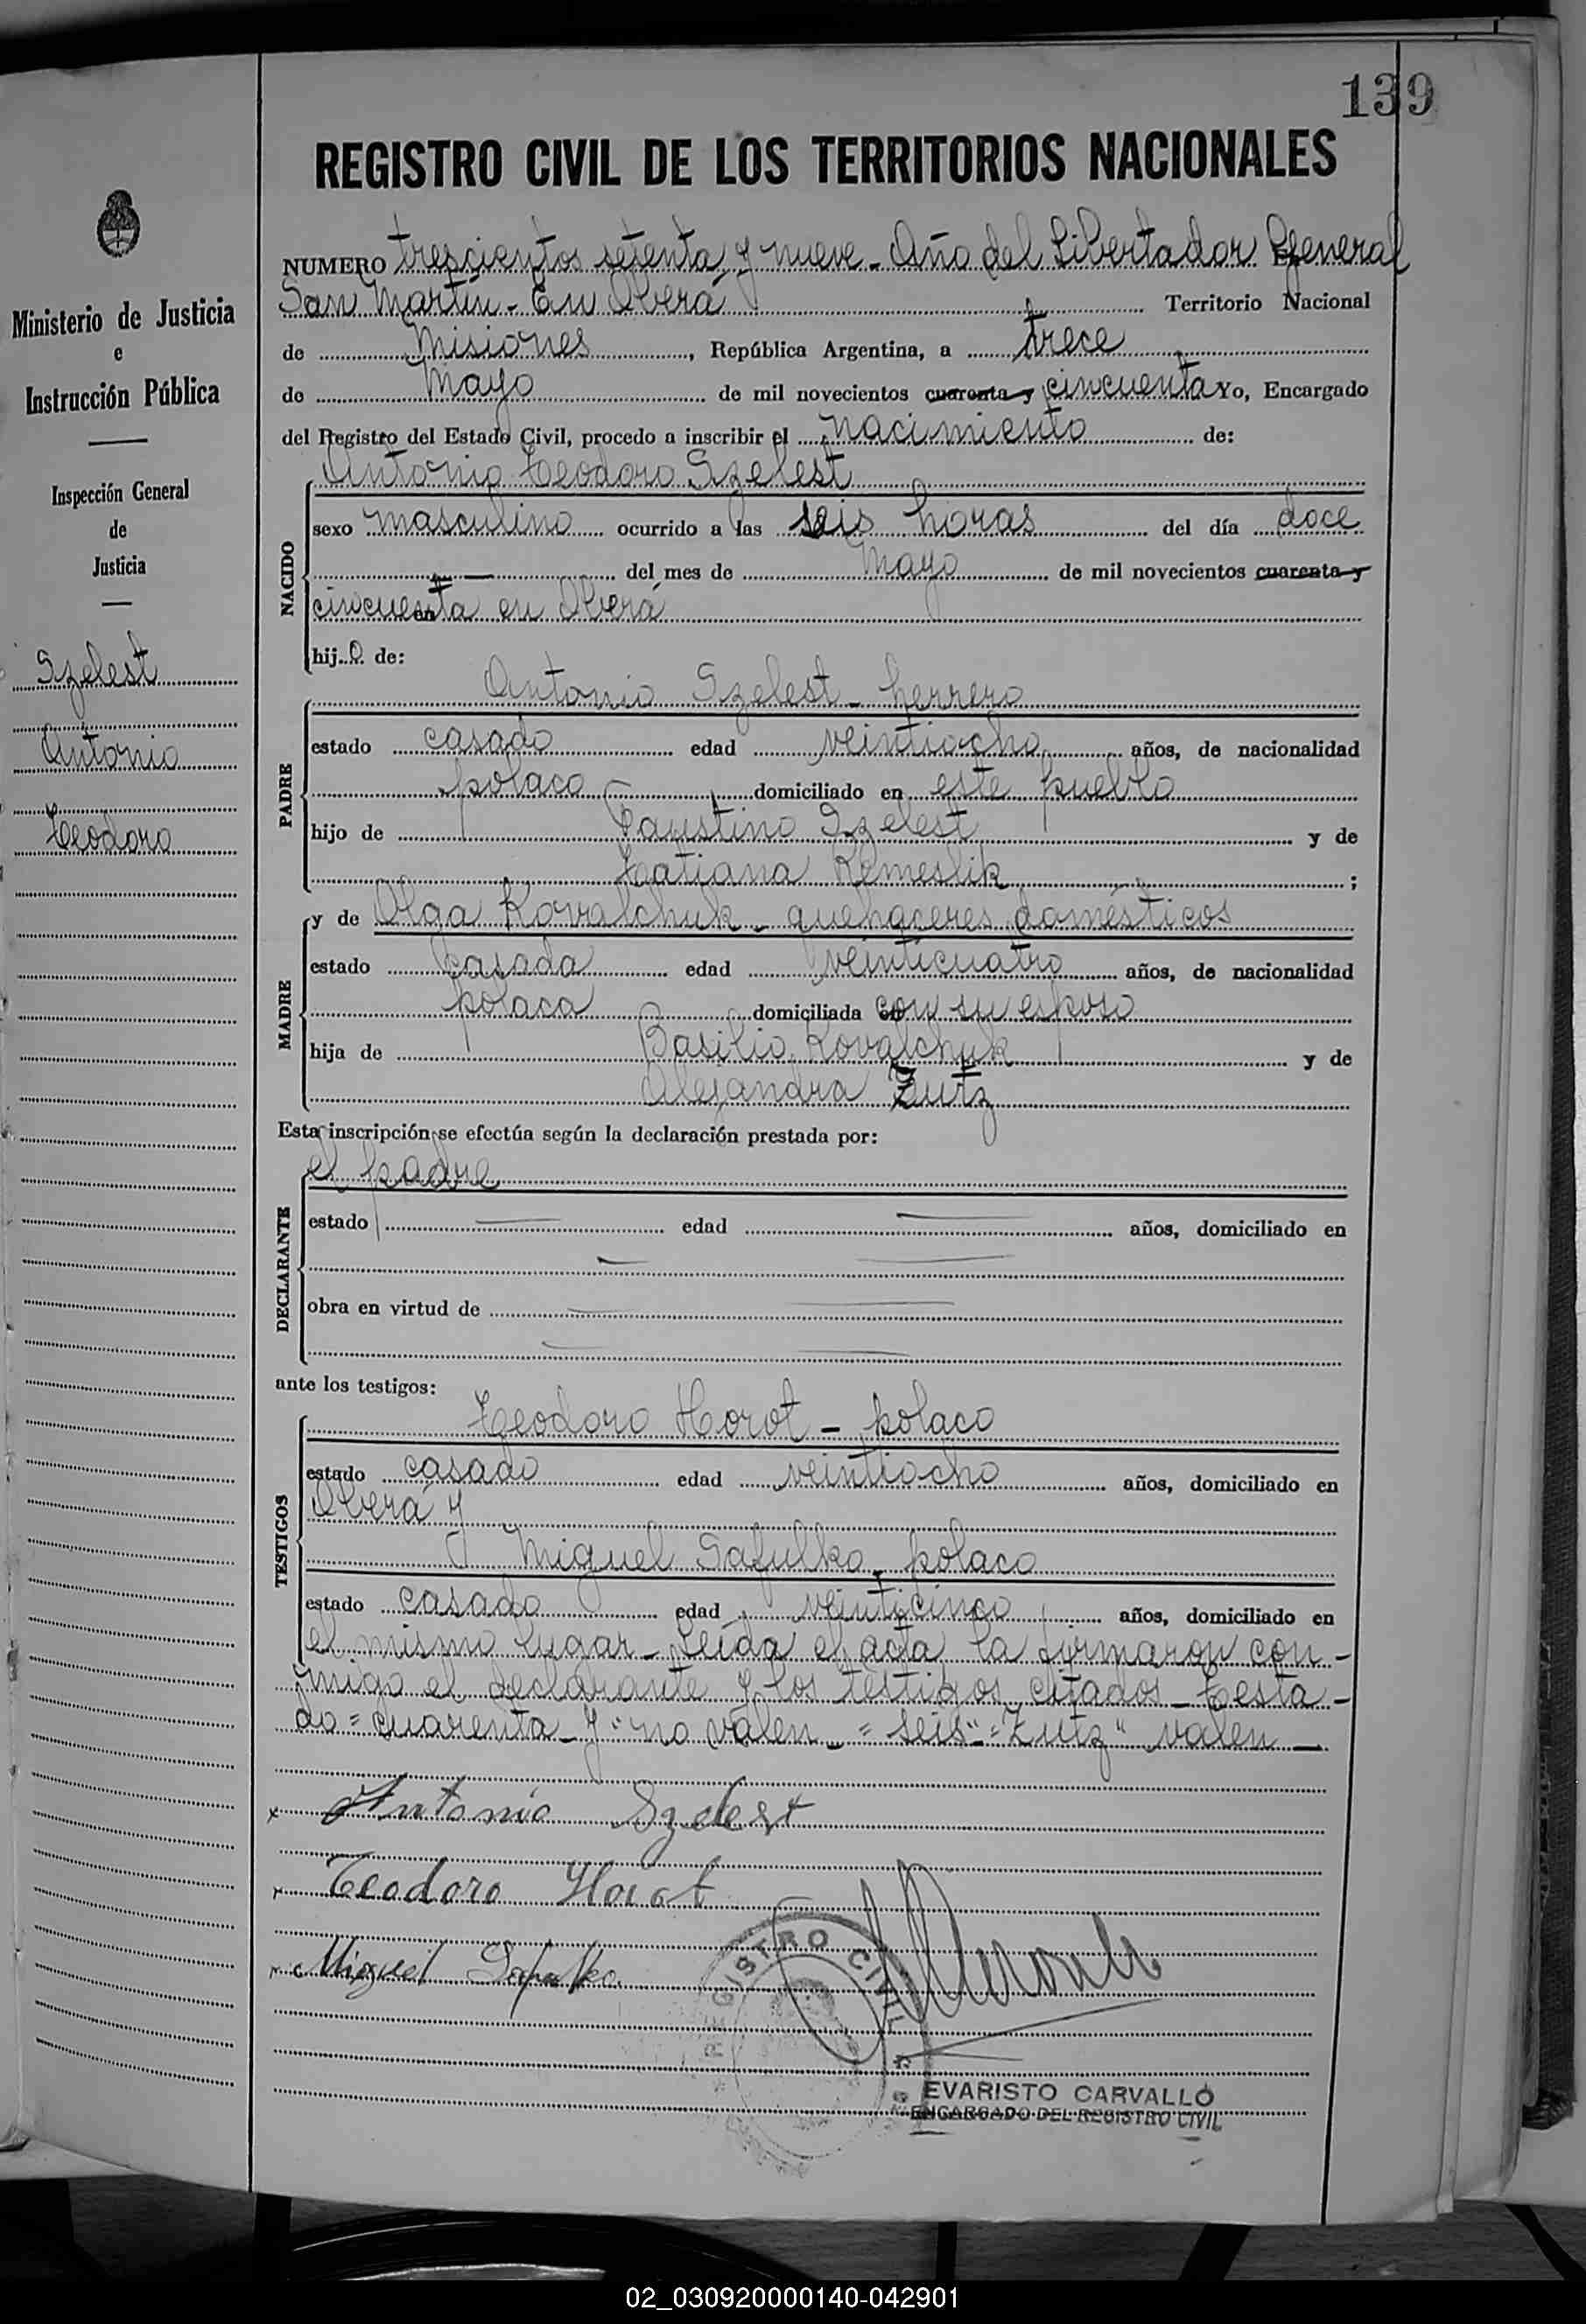 139
REGISTRO CIVIL DE LOS TERRITORIOS NACIONALES
NUMERO trescientos setenta y nueve - Año del Libertador General
San Martín - En Oberá Territorio Nacional
de Misiones, República Argentina, a trece
de Mayo de mil novecientos cuarenta y cincuenta Yo, Encargado
del Registro del Estado Civil, procedo a inscribir el nacimiento de:
Antonio Teodoro Szelest
NACIDO
sexo masculino ocurrido a las seis horas del día doce
del mes de Mayo de mil novecientos cuarenta y
cincuenta en Oberá
hijo de:
Antonio Szelest - herrero
PADRE
estado casado edad veintiocho años, de nacionalidad
polaco domiciliado en este pueblo
hijo de Faustino Szelest y de
Tatiana Remeslik ;
y de Olga Kovalchuk - quehaceres domésticos
MADRE
estado casada edad veinticuatro años, de nacionalidad
polaca domiciliada con su esposo
hija de Basilio Kovalchuk y de
Alejandra Zutz
Esta inscripción se efectúa según la declaración prestada por:
el padre
DECLARANTE
estado edad años, domiciliado en
obra en virtud de
ante los testigos:
Teodoro Horot - polaco
TESTIGOS
estado casado edad veintiocho años, domiciliado en
Oberá y
Miguel Safulko - polaco
estado casado edad veinticinco años, domiciliado en
el mismo lugar - Leída el acta la firmaron con-
migo el declarante y los testigos citados - Testa-
do = cuarenta - y " no valen - = seis " = Zutz " valen -
x Antonio Szelest
x Teodoro Horot
x Miguel Safulko
REGISTRO CIVIL
EVARISTO CARVALLO
ENCARGADO DEL REGISTRO CIVIL
Ministerio de Justicia
e
Instrucción Pública
Inspección General
de
Justicia
Szelest
Antonio
Teodoro
02_030920000140-042901